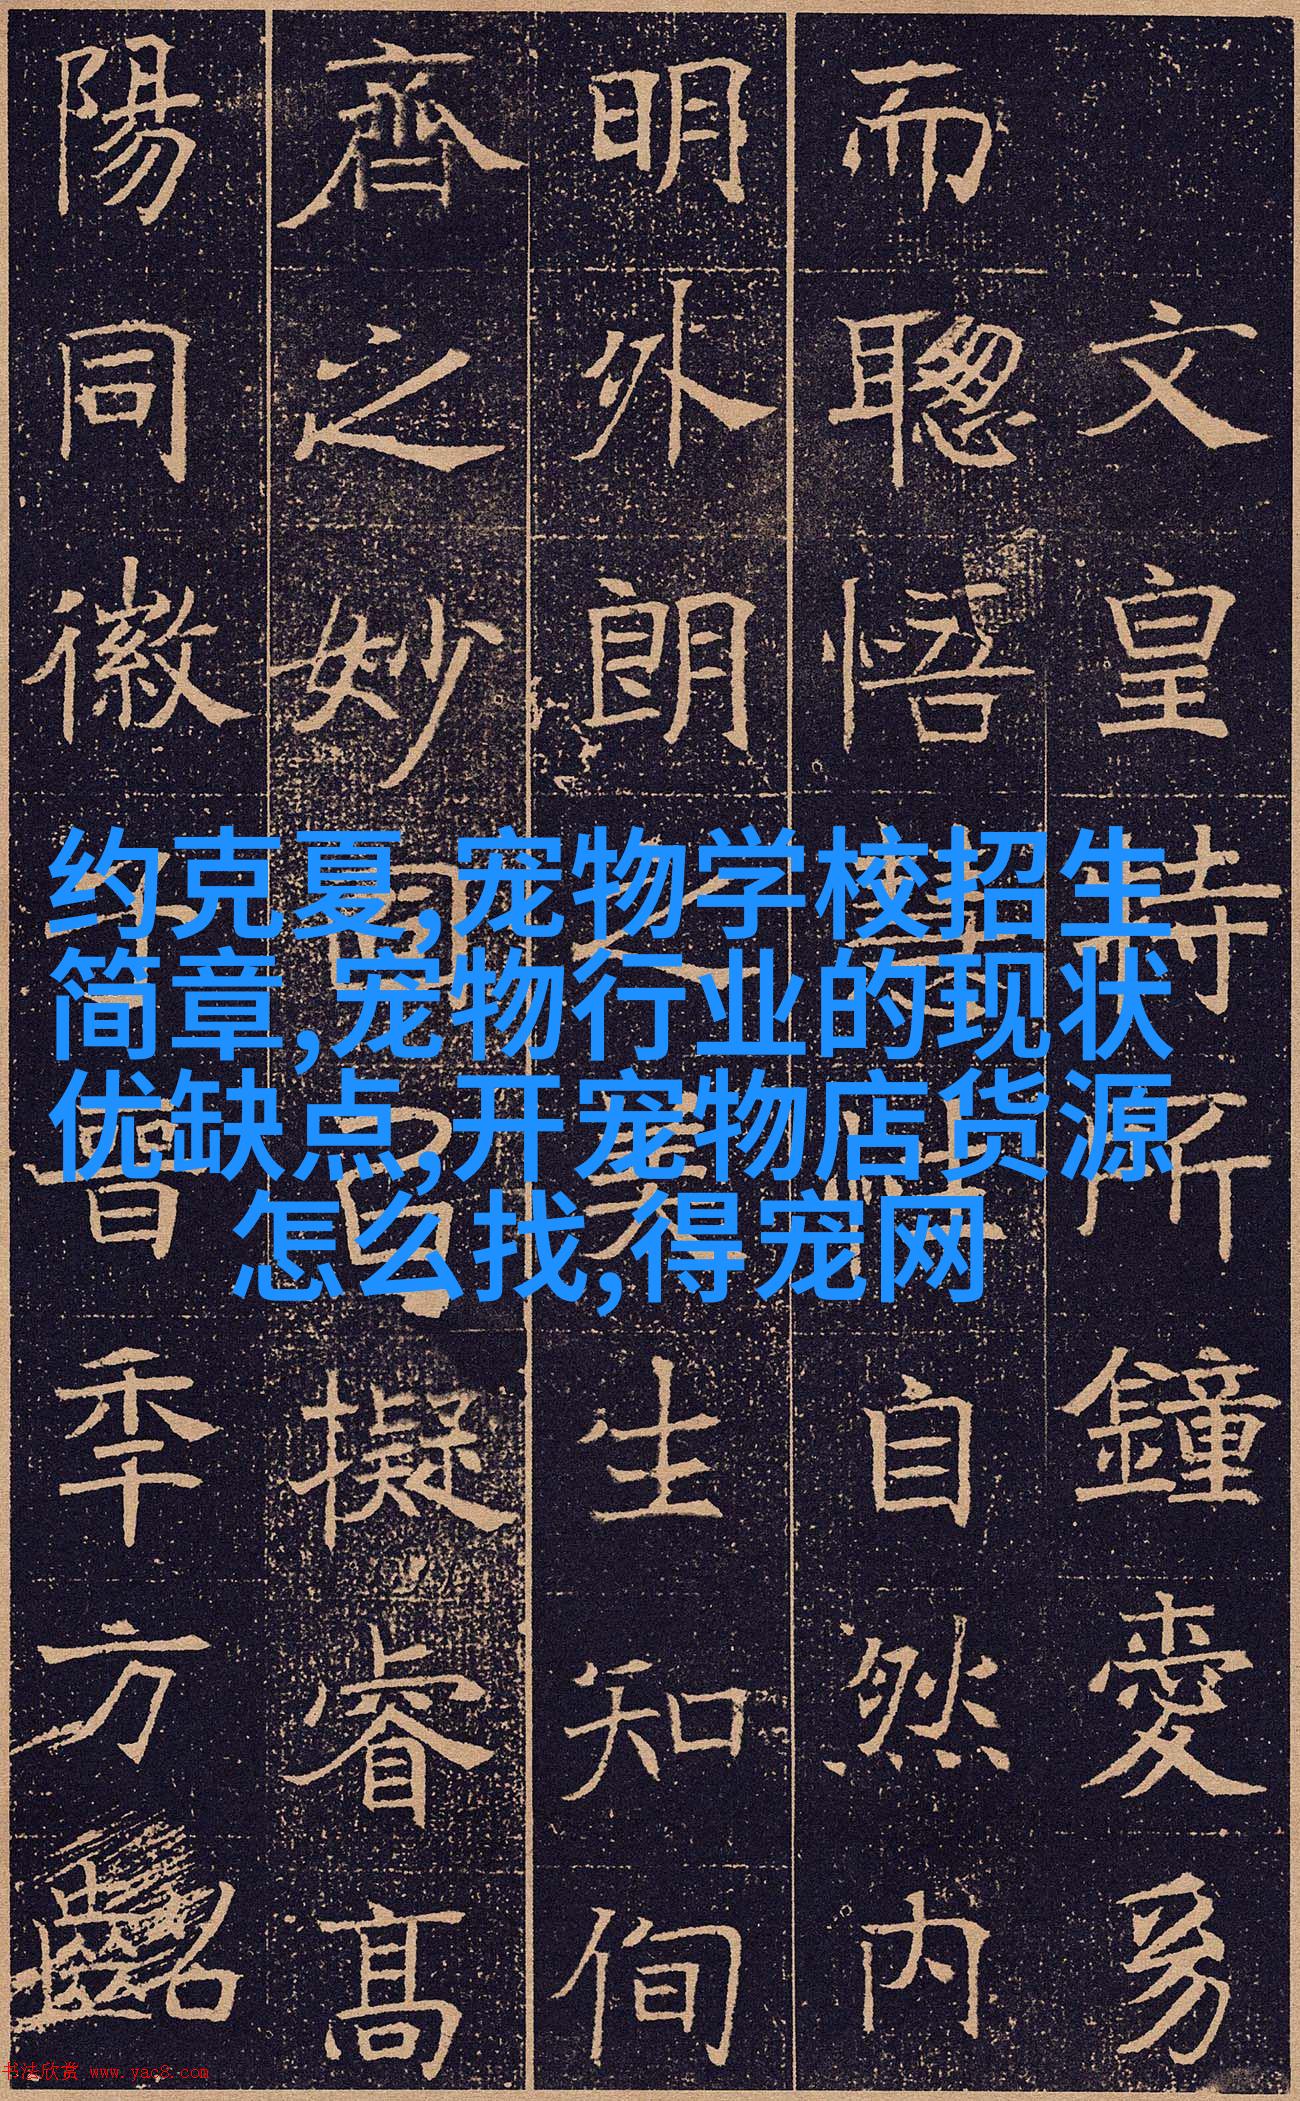 文皇特所鐘愛
而聰悟自然内
明外朗生知徇
齊之妙擬睿高
陽同徽季方齠
约克夏,宠物学校招生
简章,宠物行业的现状
优缺点,开宠物店货源
怎么找,得宠网
书法欣赏 www.yac8.com